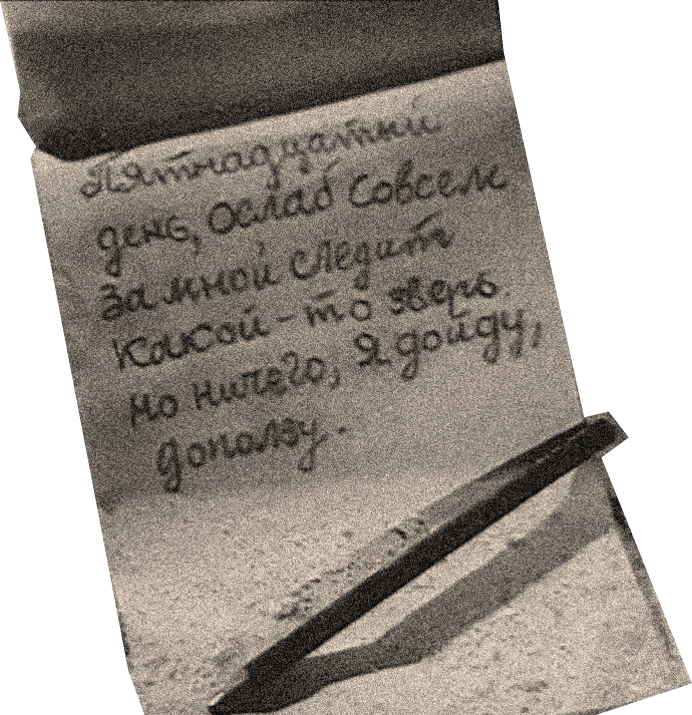 Пятнадцатый
день, Ослаб Совсем
За мной следит
Какой-то зверь.
Но ничего, Я дойду,
доползу.